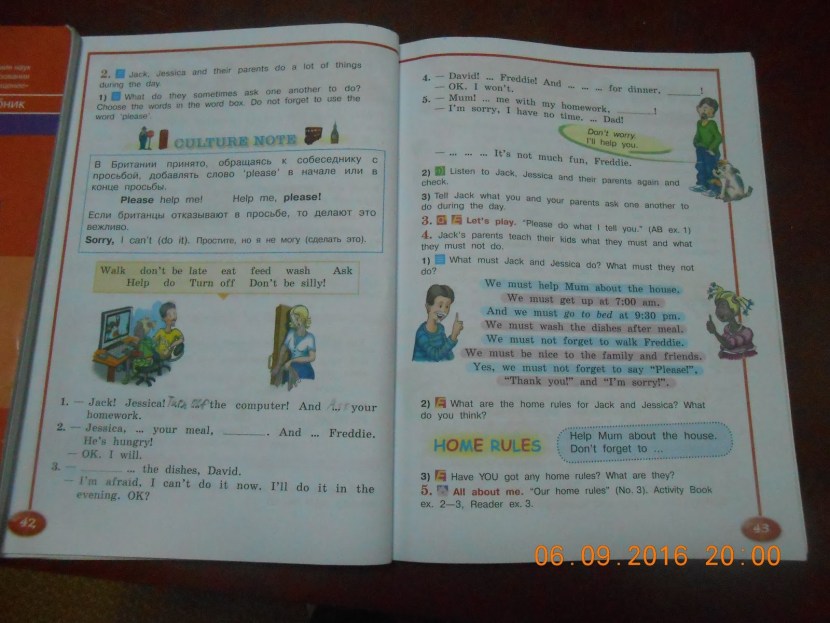 бник
2. Jack, Jessica and their parents do a lot of things
during the day.
1) What do they sometimes ask one another to do?
Choose the words in the word box. Do not forget to use the
word ‘please’.
CULTURE NOTE
В Британии принято, обращаясь к собеседнику с
просьбой, добавлять слово ‘please’ в начале или в
конце просьбы.
Please help me! Help me, please!
Если британцы отказывают в просьбе, то делают это
вежливо.
Sorry, I can't (do it). Простите, но я не могу (сделать это).
Walk don't be late eat feed wash Ask
Help do Turn off Don't be silly!
1. — Jack! Jessica! Turn off the computer! And ... your
homework.
2. — Jessica, ... your meal, ________. And ... Freddie.
He's hungry!
— OK. I will.
3. — ________ ... the dishes, David.
— I'm afraid, I can't do it now. I'll do it in the
evening. OK?
42
4. — David! ... Freddie! And ... ... ... for dinner, ______!
— OK. I won't.
5. — Mum! ... me with my homework, ______!
— I'm sorry, I have no time. ... Dad!
Don't worry.
I'll help you.
— ... ... ... It's not much fun, Freddie.
2) Listen to Jack, Jessica and their parents again and
check.
3) Tell Jack what you and your parents ask one another to
do during the day.
3. Let's play. “Please do what I tell you.” (AB ex. 1)
4. Jack's parents teach their kids what they must and what
they must not do.
1) What must Jack and Jessica do? What must they not
do?
We must help Mum about the house.
We must get up at 7:00 am.
And we must go to bed at 9:30 pm.
We must wash the dishes after meal.
We must not forget to walk Freddie.
We must be nice to the family and friends.
Yes, we must not forget to say “Please!”,
“Thank you!” and “I'm sorry!”.
2) What are the home rules for Jack and Jessica? What
do you think?
HOME RULES
Help Mum about the house.
Don't forget to ...
3) Have YOU got any home rules? What are they?
5. All about me. “Our home rules” (No. 3). Activity Book
ex. 2—3, Reader ex. 3.
43
06.09.2016 20:00